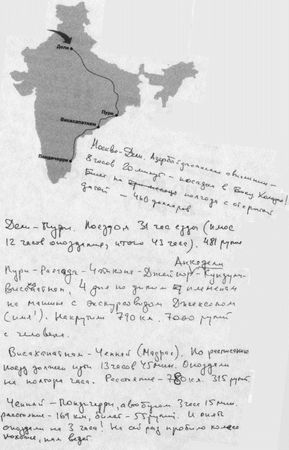 Дели
Пури
Висакапатнам
Пондичерри
Москва – Дели. Азербайджанскими авиалиниями –
8 часов 20 минут – посадка в Баку. Кошмар!
Билет на полгода с открытой
датой – 460 долларов
Дели – Пури. Поездом 31 час езды (плюс
12 часов опоздания, итого 43 часа). 481 рупия
Пури – – Джейпур –
Анкадели
Висакапатнам. 4 дня по диким племенам
на машине с экскурсоводом Джексоном
(имя!). Накрутили 790 км. 7000 рупий
с человека.
Висакапатнам – Ченнай (Мадрас). По расписанию
поезд должен идти 13 часов 45 мин. Опоздали
на полтора часа. Расстояние – 780 км. 315 рупий
Ченнай – Пондичерри, автобусом 3 часа 15 мин.
расстояние – 169 км, билет – 55 рупий. И опять
опоздали на 3 часа! На сей раз пробило колесо